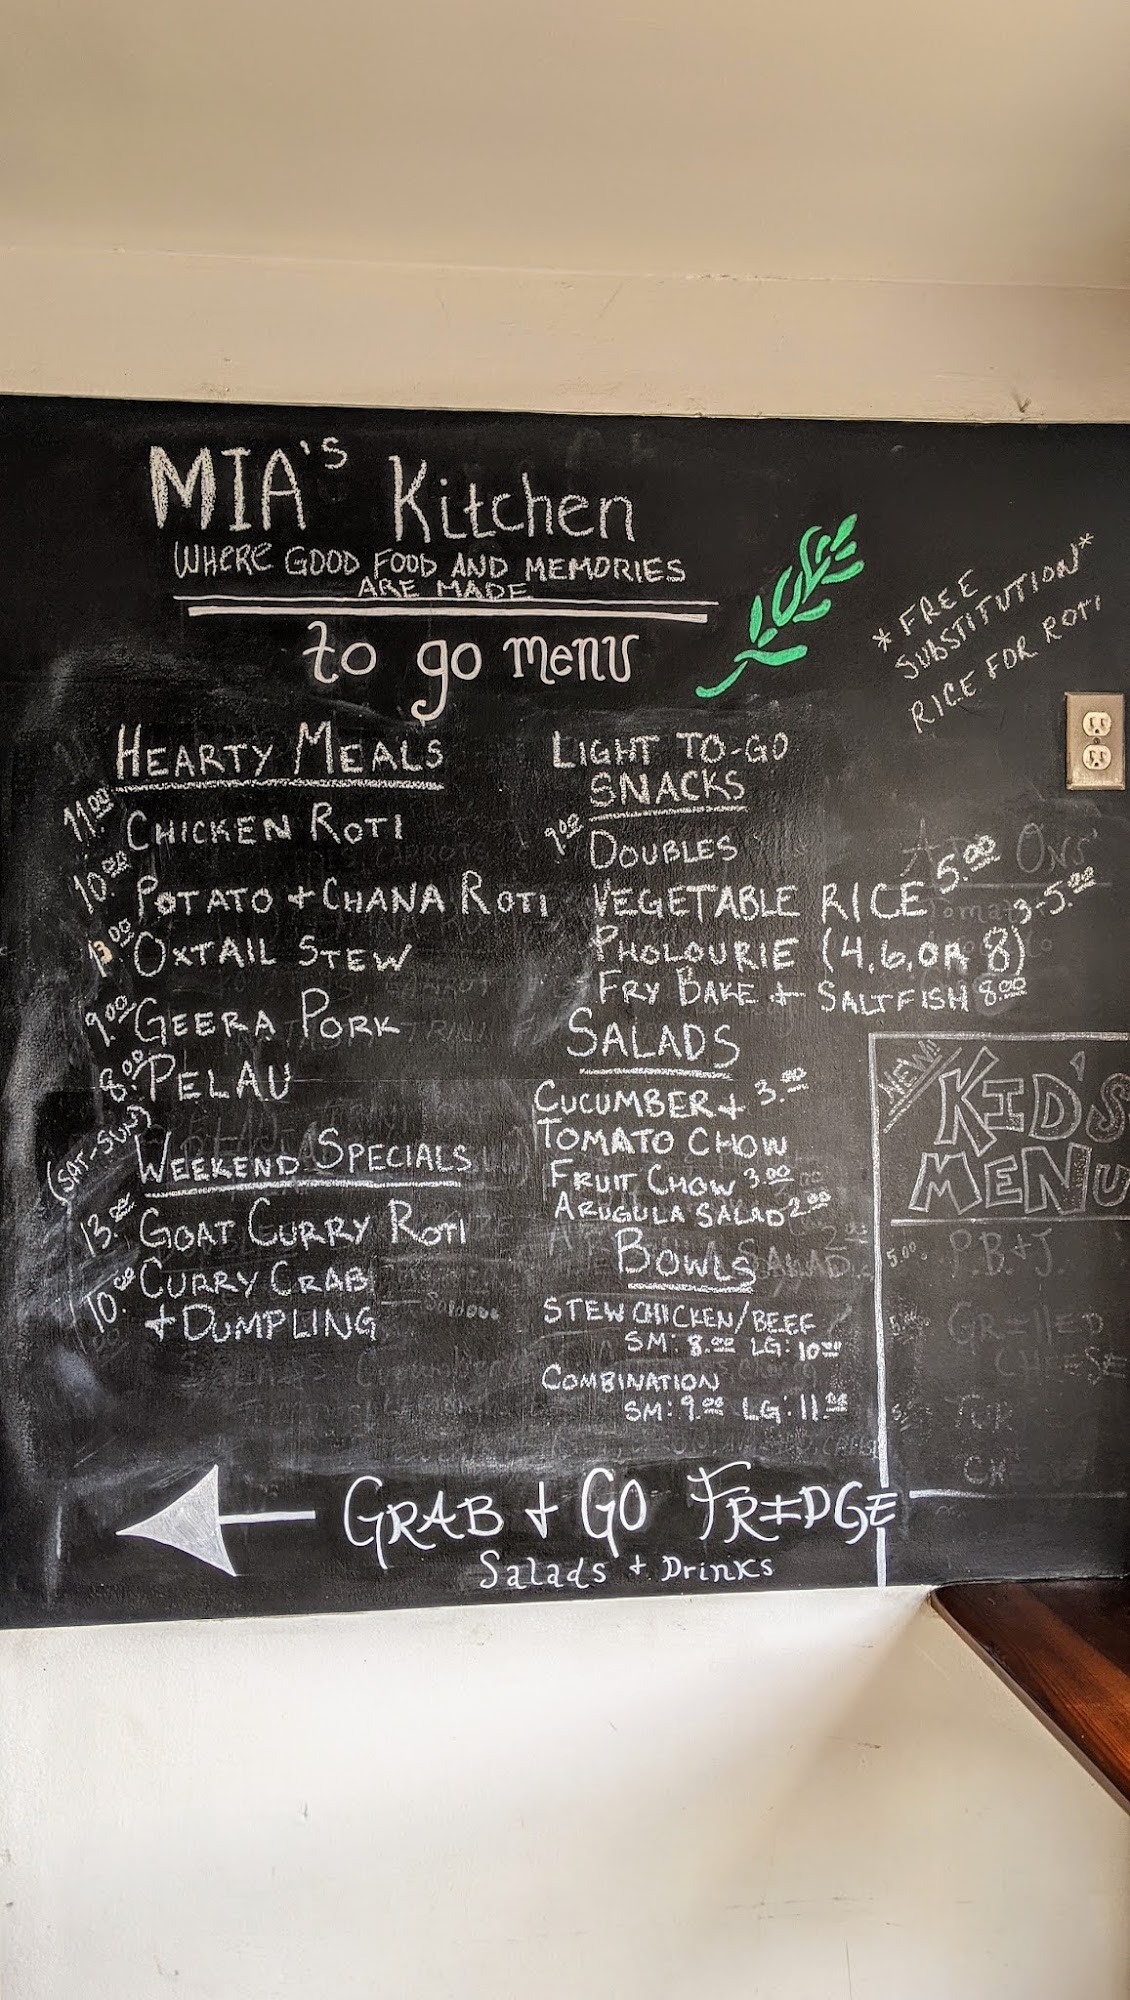 MIA's Kitchen
WHERE GOOD FOOD AND MEMORIES
ARE MADE
to go menu
*FREE
SUBSTITUTION*
RICE FOR ROTI
HEARTY MEALS
11.00 CHICKEN ROTI
10.00 POTATO + CHANA ROTI
13.00 OXTAIL STEW
9.00 GEERA PORK
8.00 PELAU
(SAT-SUN) WEEKEND SPECIALS
13.00 GOAT CURRY ROTI
10.00 CURRY CRAB
+ DUMPLING
LIGHT TO-GO
SNACKS
DOUBLES
VEGETABLE RICE 5.00
PHOLOURIE (4,6,OR 8) 3-5.00
FRY BAKE + SALTFISH 8.00
SALADS
CUCUMBER + 3.00
TOMATO CHOW
FRUIT CHOW 3.00
ARUGULA SALAD 2.00
BOWLS
STEW CHICKEN/BEEF
SM: 8.00 LG: 10.00
COMBINATION
SM: 9.00 LG: 11.00
ADD ONS
NEW!!
KID'S
MENU
5.00 P.B.+J.
GRILLED
CHEESE
GRAB + GO FRIDGE
Salads + Drinks